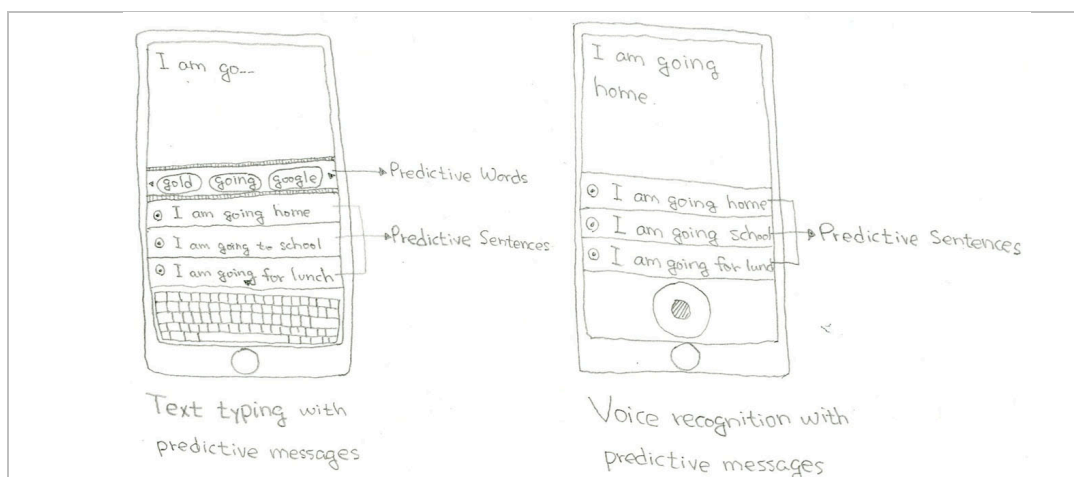 I am go...
gold going google
Predictive Words
I am going home
I am going to school
I am going for lunch
Predictive Sentences
Text typing with
predictive messages
I am going
home.
I am going home
I am going school
I am going for lund
Predictive Sentences
Voice recognition with
predictive messages